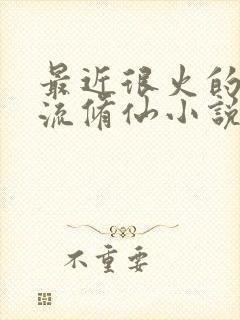 最近很火的
流脩仙小說
不重要